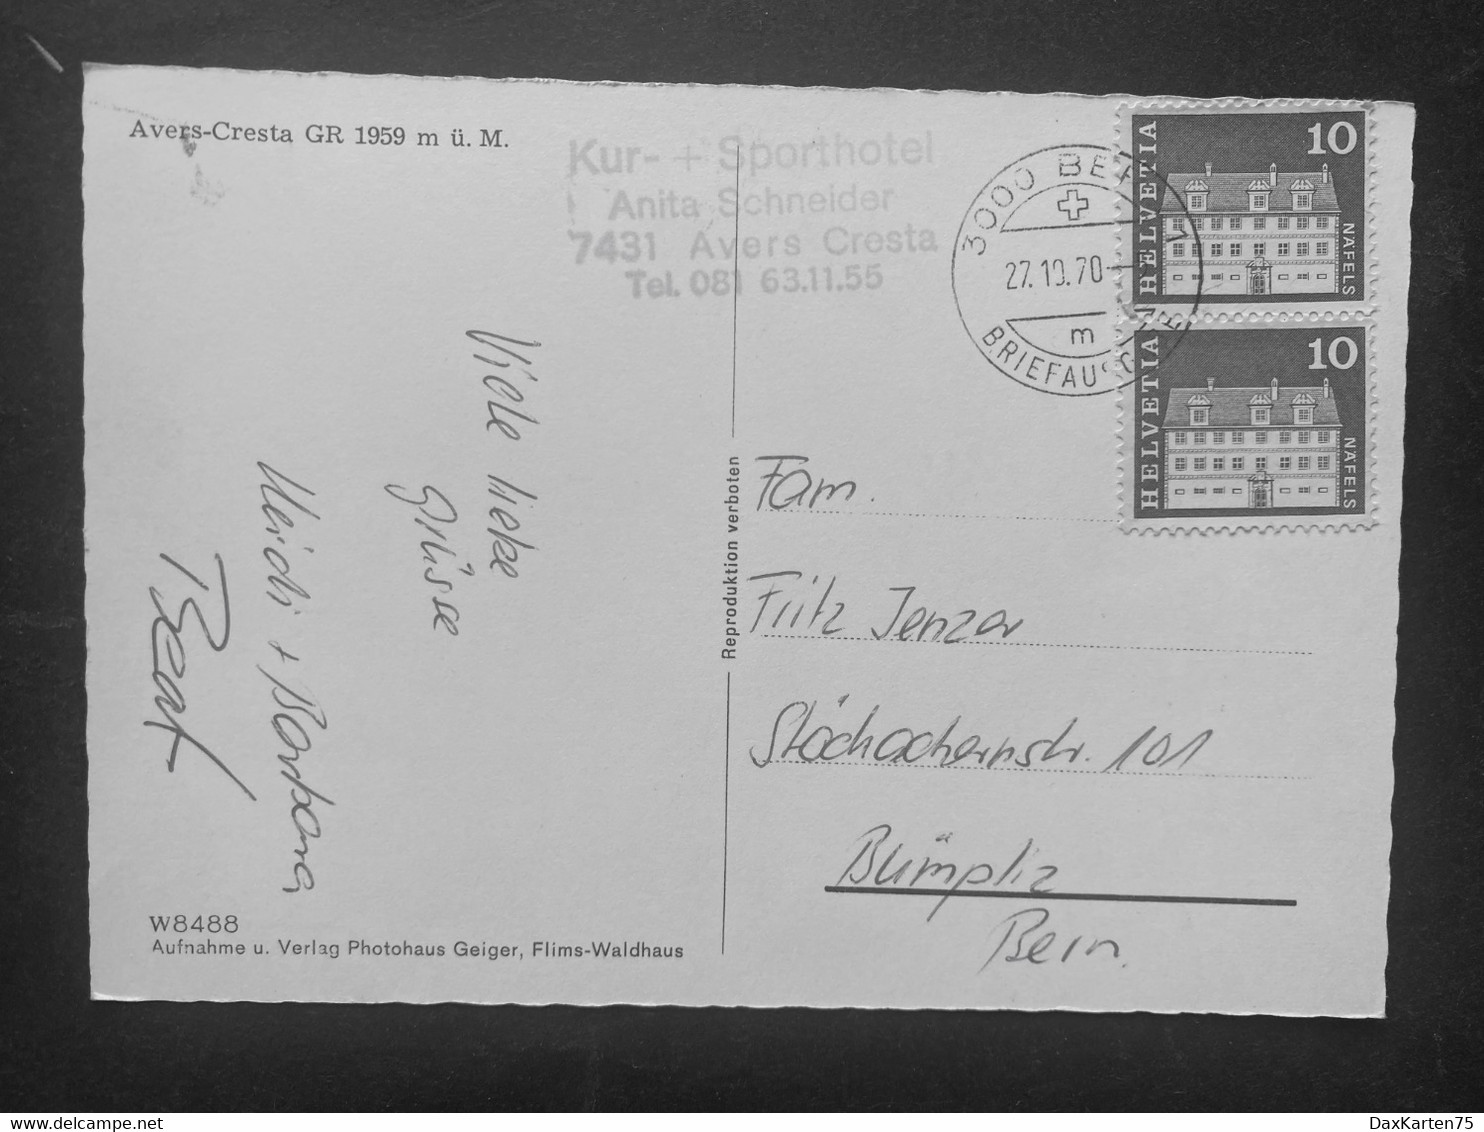 Avers-Cresta GR 1959 m ü. M.
Kur- + Sporthotel
Anita Schneider
7431 Avers Cresta
Tel. 081 63.11.55
3000 BER
27.10.70
m
BRIEFAUSG
HELVETIA
10
NÄFELS
HELVETIA
10
NÄFELS
Viele liebe
Grüsse
Heidi + Barbara
Beat
Reproduktion verboten
Fam.
Fritz Jenzer
Stöckackerstr. 101
Bümpliz
Bern.
W8488
Aufnahme u. Verlag Photohaus Geiger, Flims-Waldhaus
delcampe.net
DaxKarten75